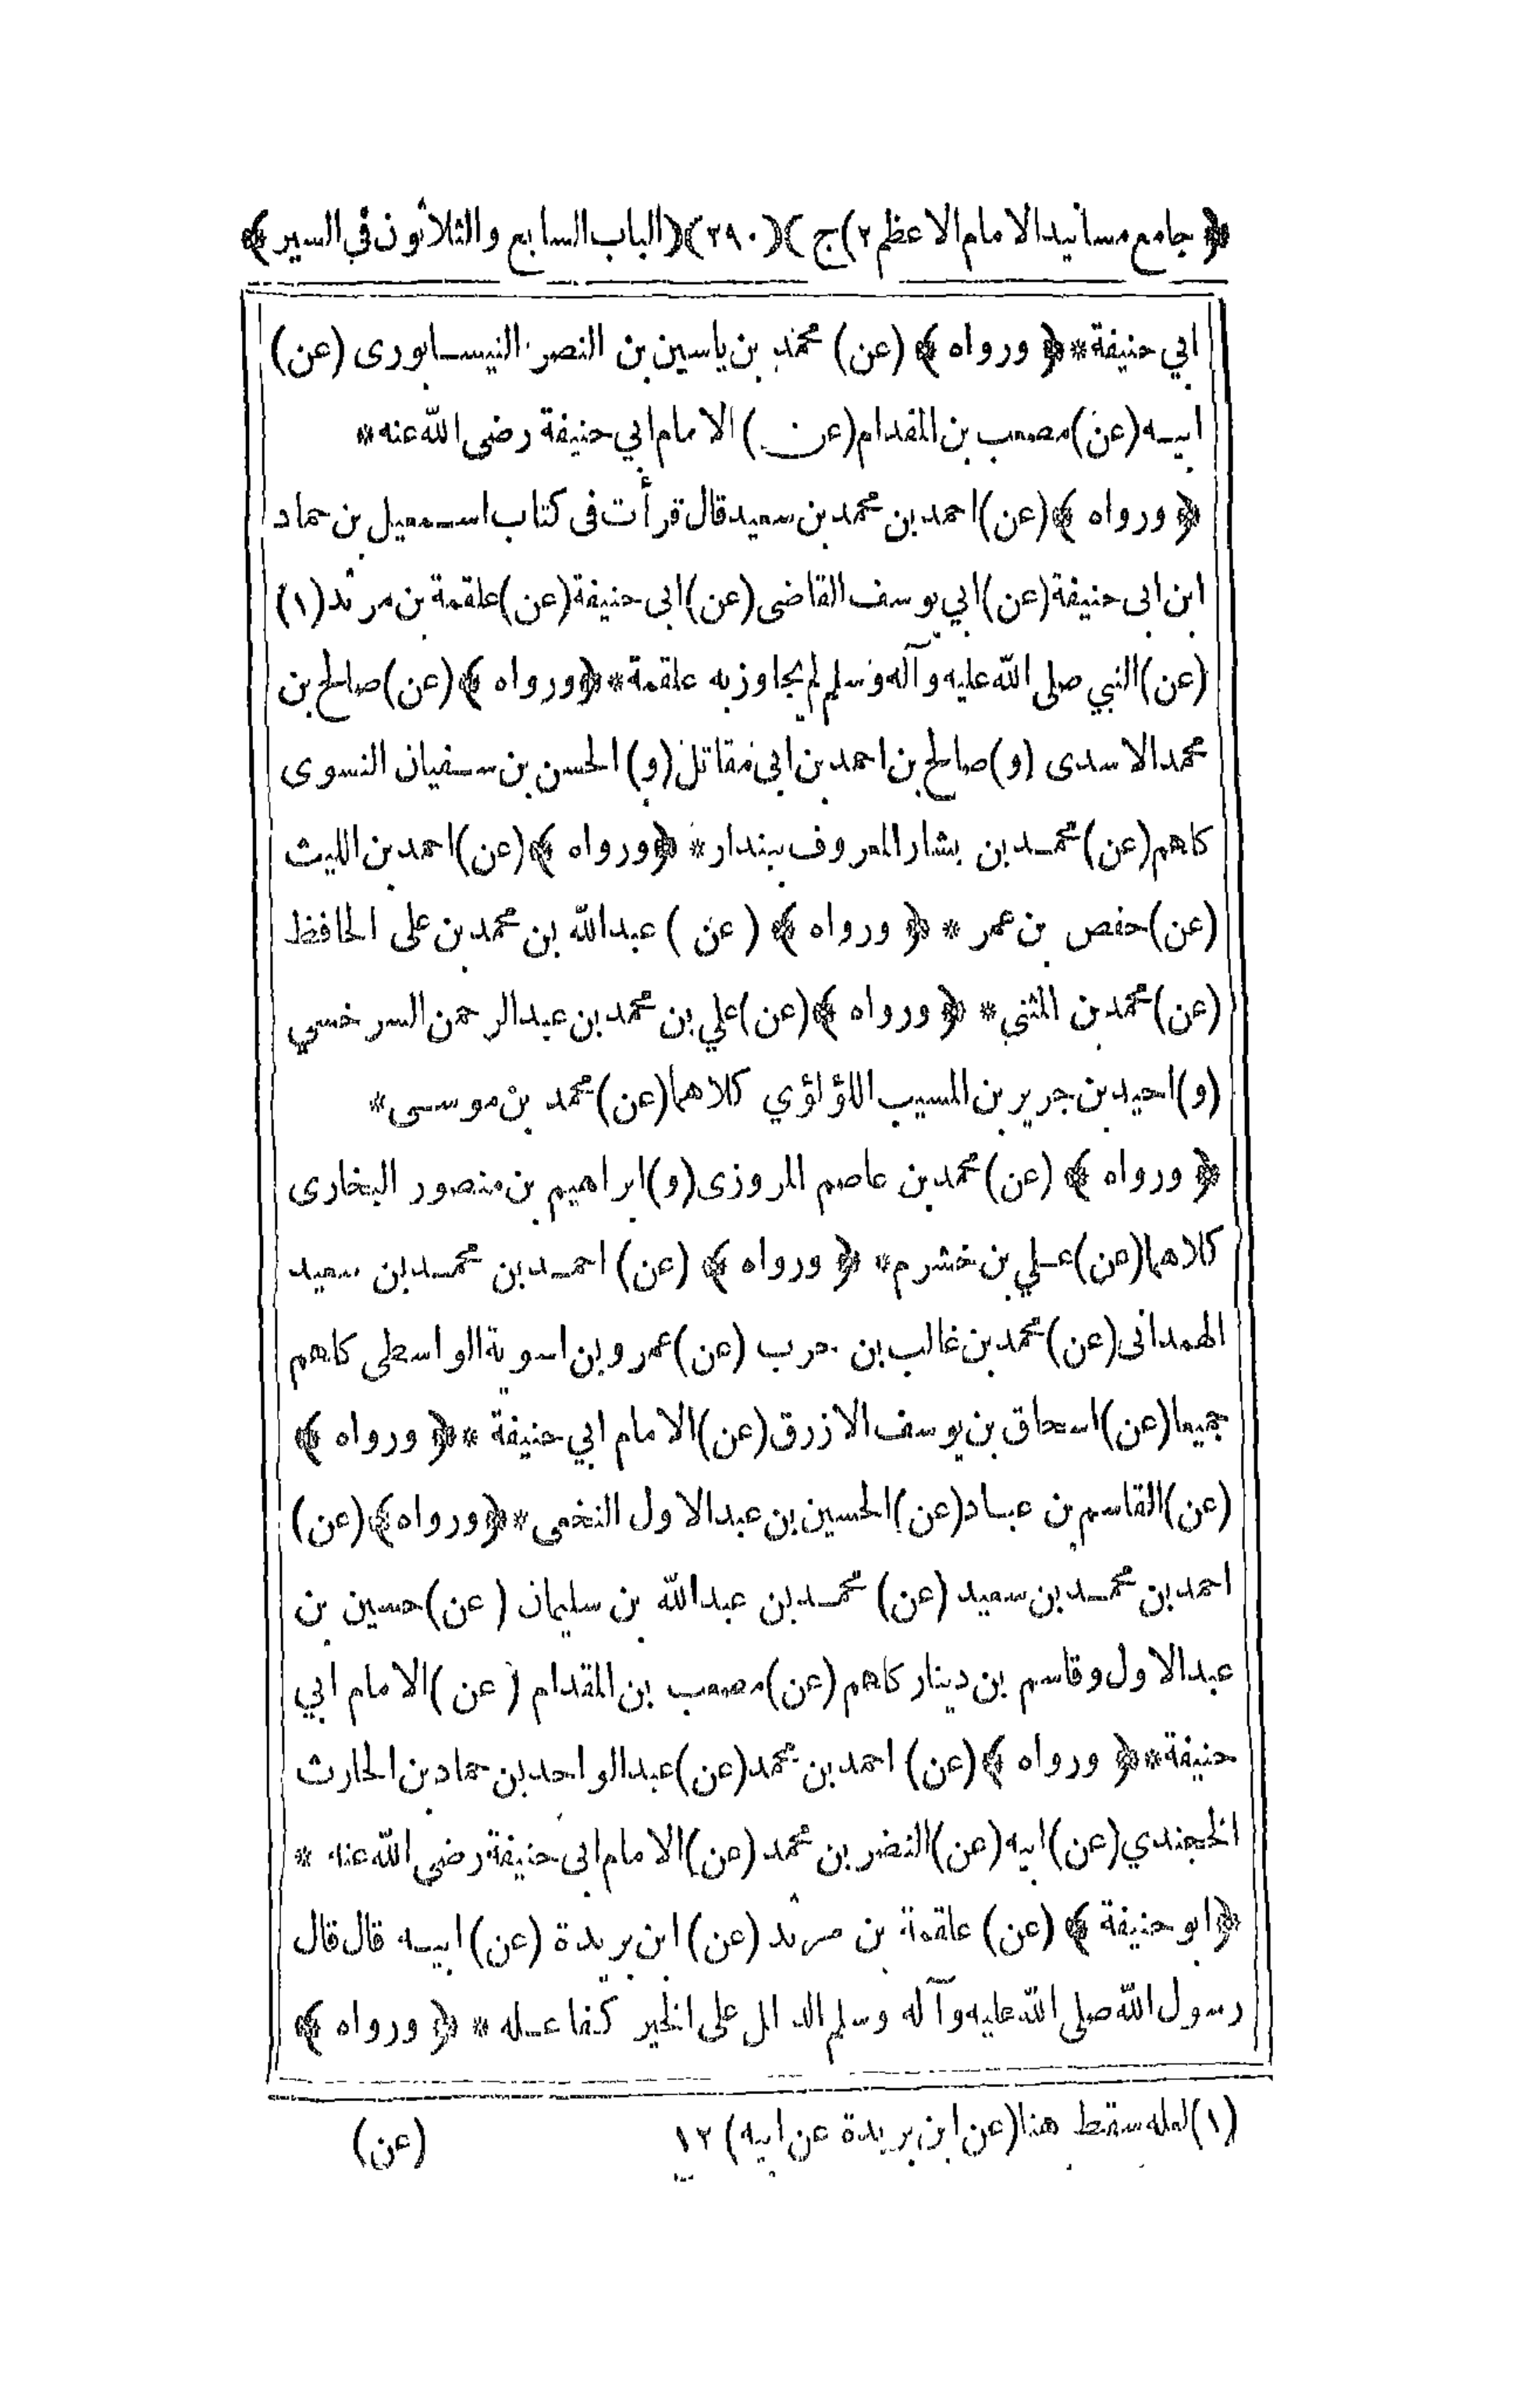 ﴿ جامع مسانيد الامام الاعظم ٢) ج )(٣٩٠)(الباب السابع والثلاثون في السير ﴾
ابي حنيفة * ﴿ ورواه ﴾ (عن) محمد بن ياسين بن النصر النيسابورى (عن)
ابيه (عن) مصعب بن المقدام (عن) الامام ابي حنيفة رضى الله عنه *
﴿ ورواه ﴾ (عن) احمد بن محمد بن سعيد قال قرأت فى كتاب اسمعيل بن حماد
ابن ابى حنيفة (عن) ابي يوسف القاضى (عن) ابى حنيفة (عن) علقمة بن مرثد (١)
(عن) النبي صلى الله عليه وآله وسلم لم يجاوز به علقمة * ﴿ ورواه ﴾ (عن) صالح بن
محمد الاسدى (و) صالح بن احمد بن ابى مقاتل (و) الحسن بن سفيان النسوى
كلهم (عن) محمد بن بشار المعروف ببندار * ﴿ ورواه ﴾ (عن) احمد بن الليث
(عن) حفص بن عمر * ﴿ ورواه ﴾ (عن) عبد الله بن محمد بن على الحافظ
(عن) محمد بن المثنى * ﴿ ورواه ﴾ (عن) علي بن محمد بن عبد الرحمن السرخسي
(و) احيد بن جرير بن المسيب اللؤلؤي كلاهما (عن) محمد بن موسى *
﴿ ورواه ﴾ (عن) محمد بن عاصم المروزى (و) ابراهيم بن منصور البخارى
كلاهما (عن) علي بن خشرم * ﴿ ورواه ﴾ (عن) احمد بن محمد بن سعيد
الهمدانى (عن) محمد بن غالب بن حرب (عن) عمرو بن اسوية الواسطى كلهم
جميعا (عن) اسحاق بن يوسف الازرق (عن) الامام ابي حنيفة * ﴿ ورواه ﴾
(عن) القاسم بن عباد (عن) الحسين بن عبد الاول النخعى * ﴿ ورواه ﴾ (عن)
احمد بن محمد بن سعيد (عن) محمد بن عبد الله بن سليمان (عن) حسين بن
عبد الاول وقاسم بن دينار كلهم (عن) مصعب بن المقدام (عن) الامام ابي
حنيفة * ﴿ ورواه ﴾ (عن) احمد بن محمد (عن) عبد الواحد بن حماد بن الحارث
الخجندي (عن) ابيه (عن) النضر بن محمد (عن) الامام ابى حنيفة رضى الله عنه *
﴿ ابو حنيفة ﴾ (عن) علقمة بن مرثد (عن) ابن بريدة (عن) ابيه قال قال
رسول الله صلى الله عليه وآله وسلم الدال على الخير كفاعله * ﴿ ورواه ﴾
(١) لعله سقط هنا (عن ابن بريدة عن ابيه) ١٢
(عن)